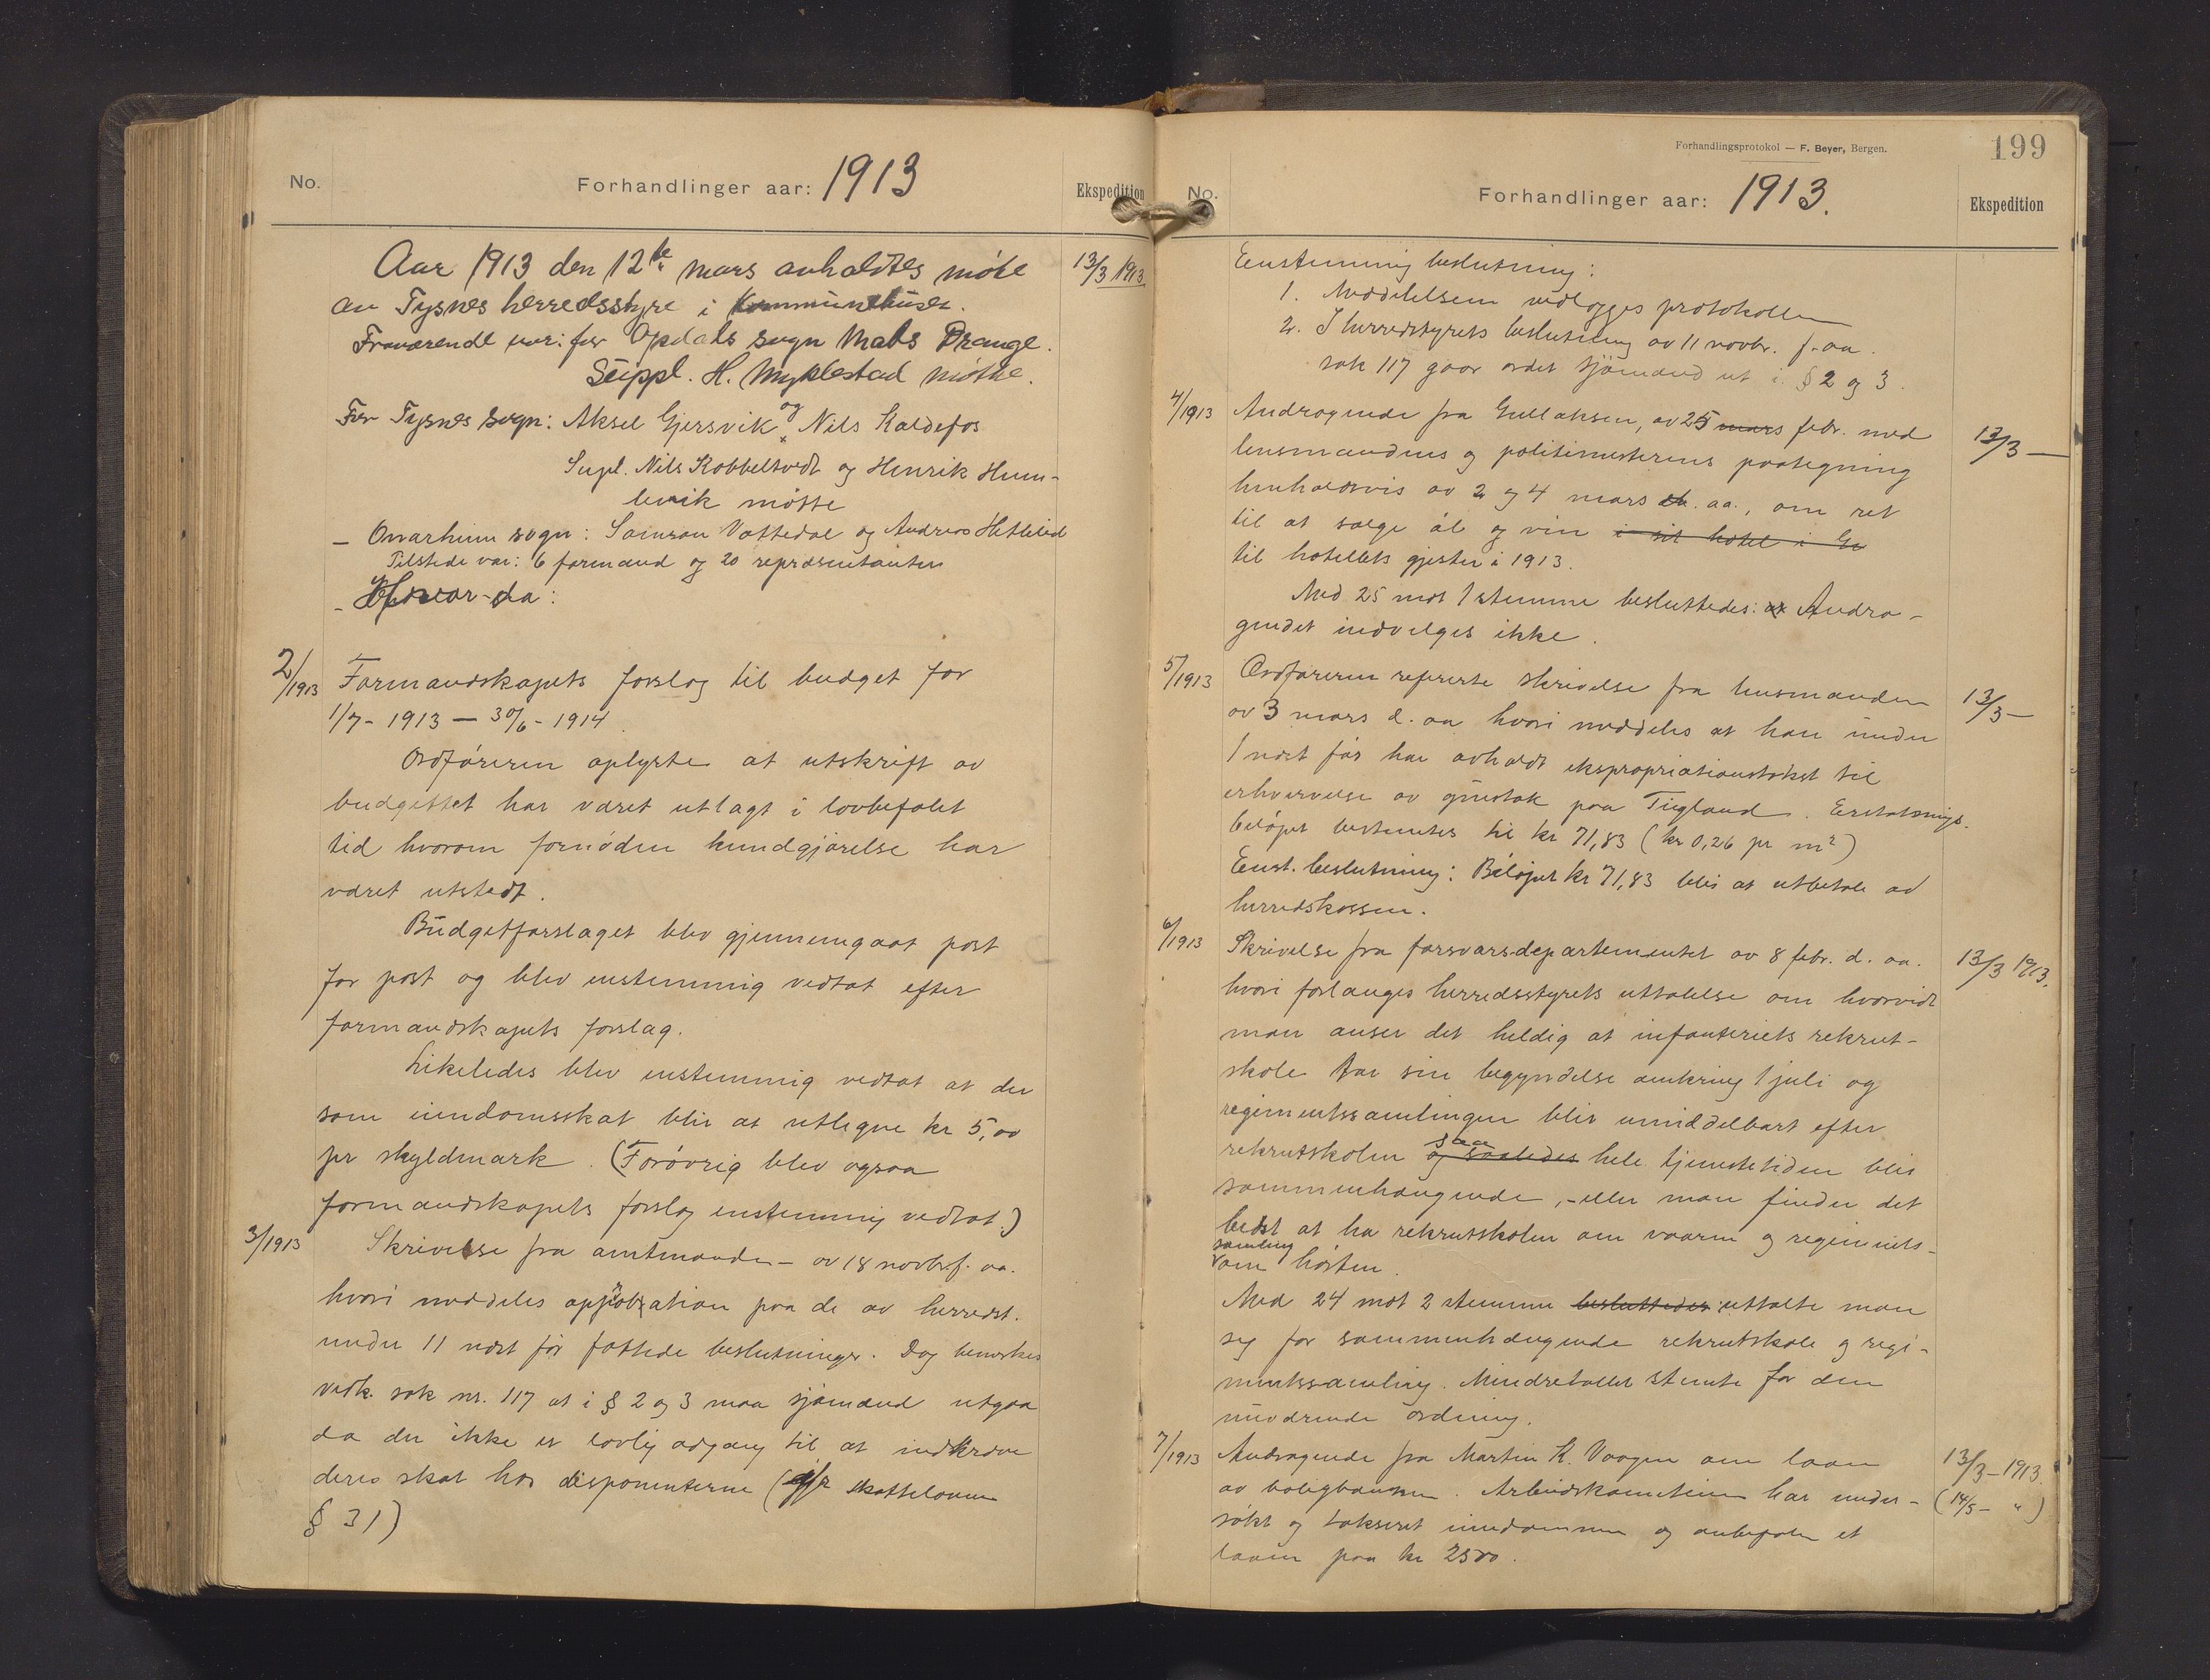 No.
Forhandlinger aar: 1913
Ekspedition
Aar 1913 den 12te mars avholdtes møte
13/3 1913.
av Tysnes herredsstyre i kommunehuset.
Fraværende var: for Opdals sogn Mats Drange.
Suppl. H. Myklestad møtte.
For Tysnes sogn: Aksel Gjersvik og Nils Kaldefos
Supl. Nils Kobbeltvedt og Henrik Hum-
levik møtte
— Onarheim sogn: Samson Vattedal og Andreas Hetlelid
Tilstede var: 6 formænd og 20 repræsentanter
- Hvor da:
2/1913 Formandskapets forslag til budget for
1/7 - 1913 — 30/6 - 1914.
Ordføreren oplyste at utskrift av
budgettet har været utlagt i lovbefalet
tid hvorom fornøden kundgjørelse har
været utstedt.
Budgetforslaget blev gjennemgaat post
for post og blev enstemmig vedtat efter
formandskapets forslag.
Likeledes blev enstemmig vedtat at der
som eiendomsskat blir at utligne kr 5,00
pr skyldmark. (Forøvrig blev ogsaa
formandskapets forslag enstemmig vedtat.)
3/1913 Skrivelse fra amtmanden av 18 novbr. f. aa.
hvori meddeles approbation paa de av herredst.
under 11 næst før fattede beslutninger. Dog bemerkes
vedk. sak nr. 117 at i § 2 og 3 maa sjømænd utgaa
da der ikke er lovlig adgang til at indkræve
deres skat hos disponenterne (jfr skatteloven
§ 31)
Forhandlingsprotokol — F. Beyer, Bergen.
199
No.
Forhandlinger aar: 1913.
Ekspedition
Eenstemmig beslutning:
1. Meddelelsen vedlægges protokollen
2. I herredstyrets beslutning av 11 novbr. f. aa.
sak 117 gaar ordet sjømænd ut i § 2 og 3.
4/1913 Andragende fra Gullaksen, av 25 mars febr. med
13/3 —
lensmandens og politimesterens paategning
henholdsvis av 2 og 4 mars d. aa., om ret
til at sælge øl og vin i sit hotel i Ge
til hotellets gjester i 1913.
Med 25 mot 1 stemme besluttedes: at Andra-
gendet indvilges ikke.
5/1913 Ordføreren refererte skrivelse fra lensmanden
13/3 —
av 3 mars d. aa hvori meddeles at han under
1 næst før har avholdt ekspropriationstakst til
erhvervelse av grustak paa Tegland. Erstatnings-
beløpet bestemtes til kr 71,83 (kr 0,26 pr m²)
Enst. beslutning: Beløpet kr 71,83 blir at utbetale av
herredskassen.
6/1913 Skrivelse fra forsvarsdepartementet av 8 febr. d. aa.
13/3 1913.
hvori forlanges herredsstyrets uttalelse om hvorvidt
man anser det heldig at infanteriets rekrut-
skole tar sin begyndelse omkring 1 juli og
regimentssamlingen blir umiddelbart efter
rekrutskolen og saaledes saa hele tjenestetiden blir
sammenhængende, - eller man finder det
bedst at ha rekrutskolen om vaaren og regiments-
samling om høsten.
Med 24 mot 2 stemmer besluttedes: uttalte man
sig for sammenhængende rekrutskole og regi-
mentssamling. Mindretallet stemte for den
nuværende ordning.
7/1913 Andragende fra Martin K. Vaagen om laan
13/3 - 1913.
av boligbanken. Arbeidskomiteen har under-
(14/5 - ")
søkt og takseret eiendommen og anbefaler et
laan paa kr 2500.